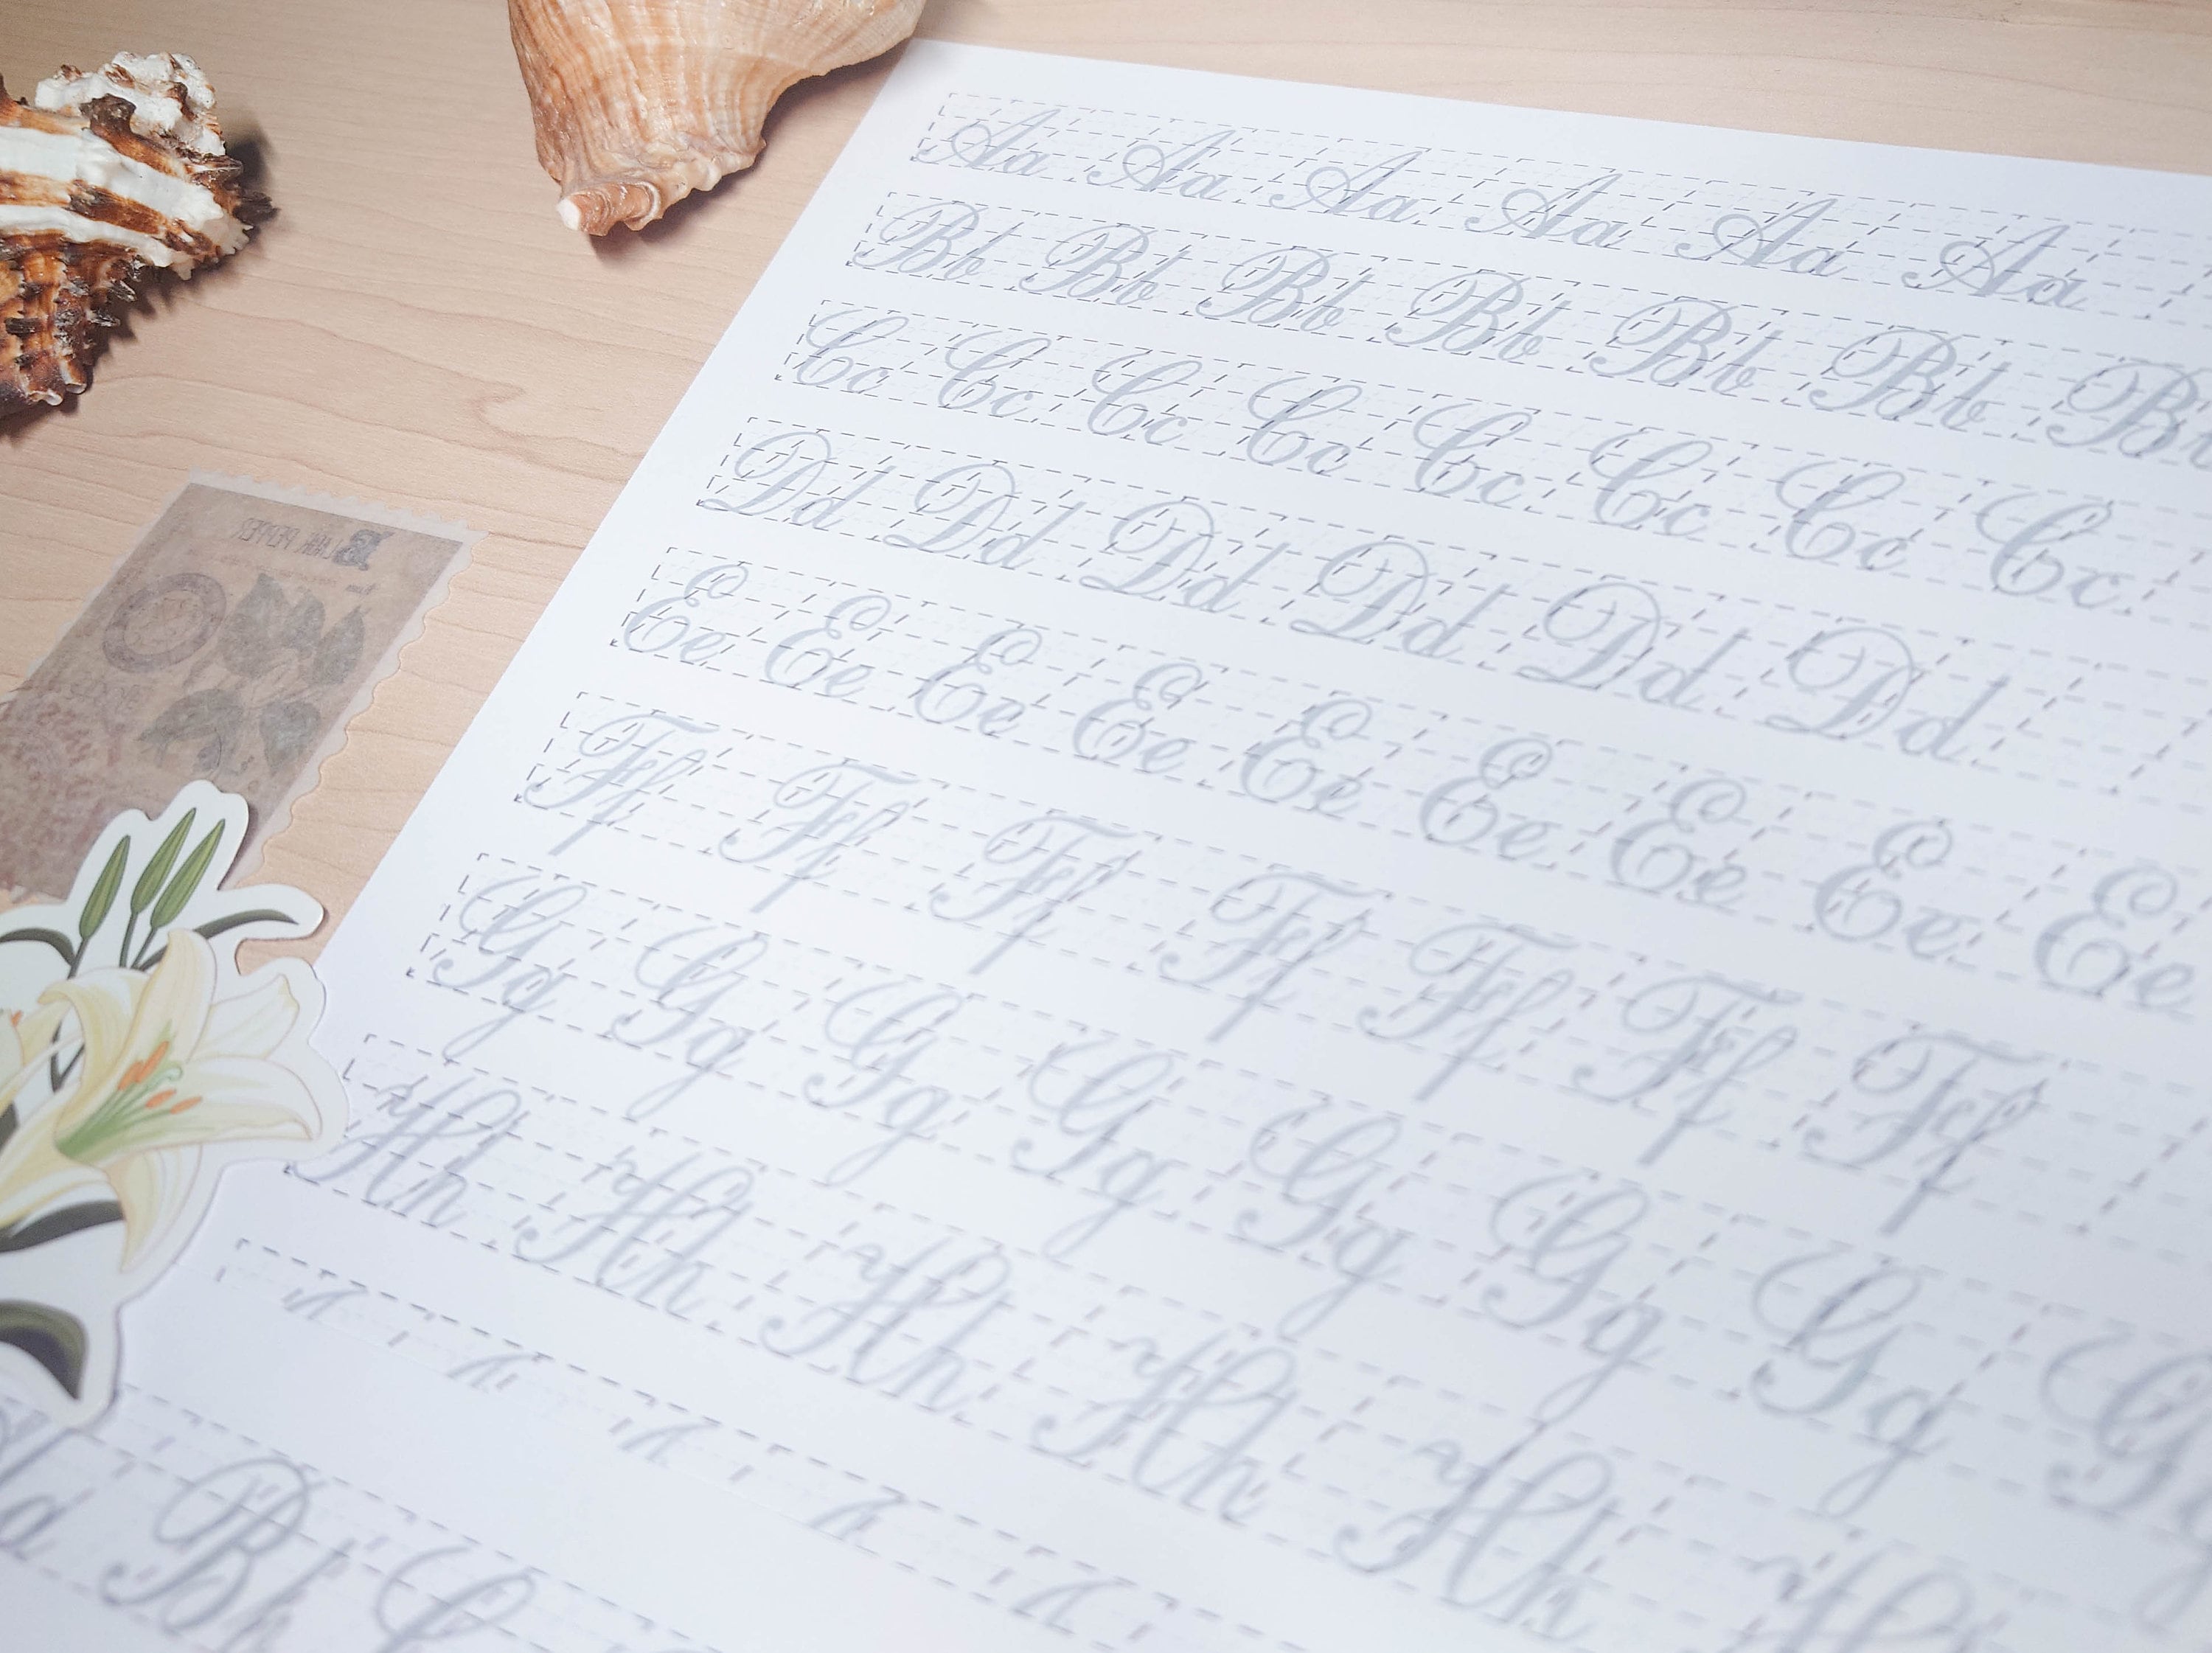 Aa Aa Aa Aa Aa Aa
Bb Bb Bb Bb Bb Bb B
Cc Cc Cc Cc Cc Cc Cc Cc
Dd Dd Dd Dd Dd Dd
Ee Ee Ee Ee Ee Ee Ee Ee Ee
Ff Ff Ff Ff Ff Ff Ff
Gg Gg Gg Gg Gg Gg Gg G
Hh Hh Hh Hh Hh
BLACK PEPPER